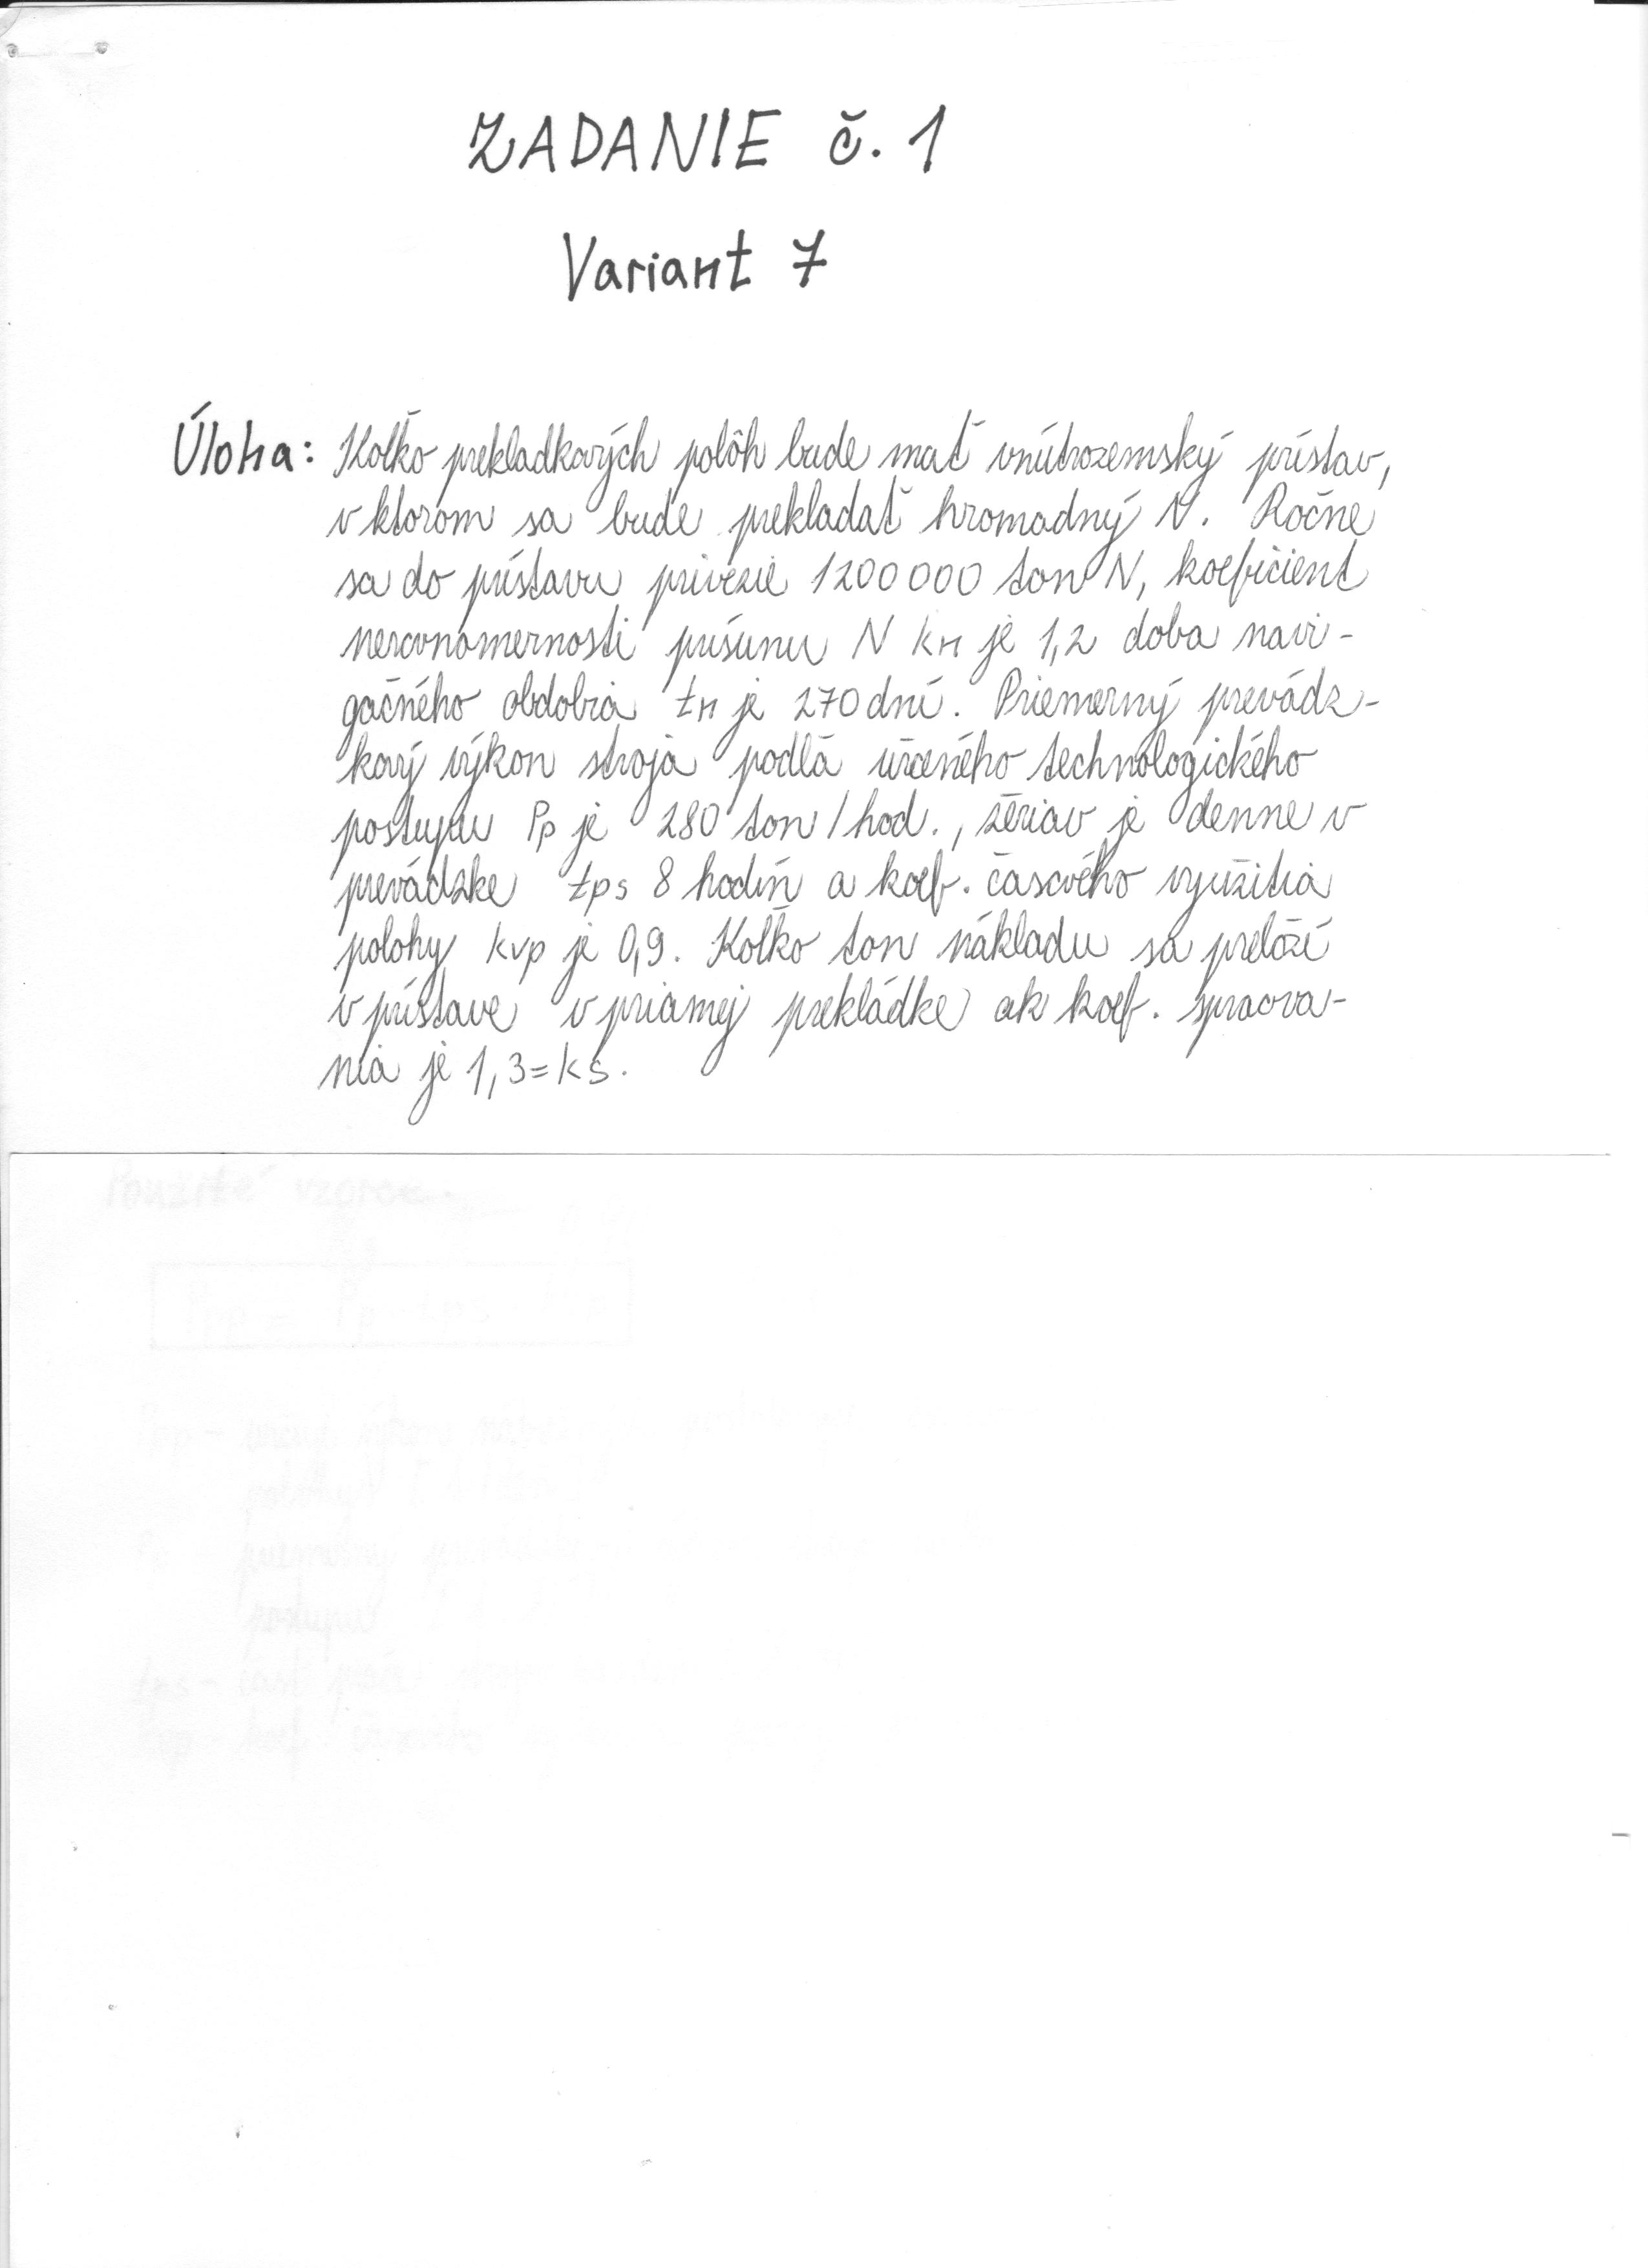 ZADANIE č. 1
Variant 7
Úloha: Koľko prekladkových polôh bude mať vnútrozemský prístav,
v ktorom sa bude prekladať hromadný N. Ročne
sa do prístavu privezie 1200 000 ton N, koeficient
nerovnomernosti prísunu N kn je 1,2 doba navi-
gačného obdobia tn je 270 dní. Priemerný prevádz-
kový výkon stroja podľa určeného technologického
postupu Pp je 280 ton / hod., žeriav je denne v
prevádzke tps 8 hodín a koef. časového využitia
polohy kvp je 0,9. Koľko ton nákladu sa preloží
v prístave v priamej prekládke ak koef. spracova-
nia je 1,3=ks.
Použité
Pp
postupu
tps -